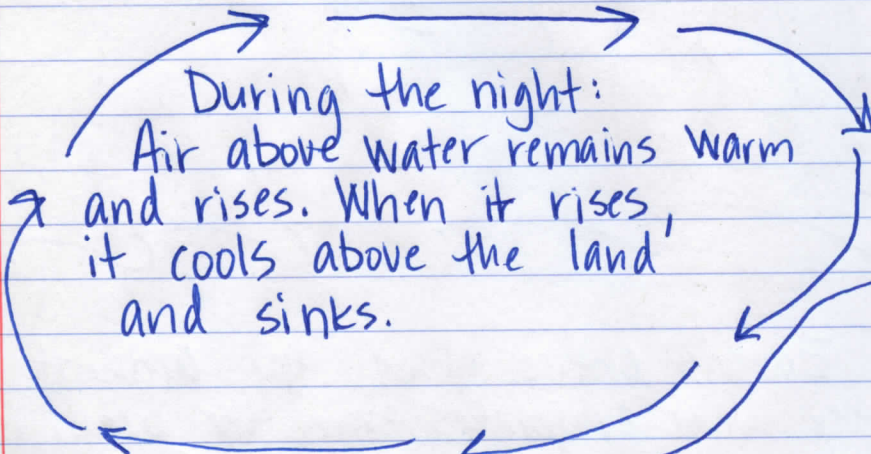 During the night:
Air above water remains warm
and rises. When it rises,
it cools above the land
and sinks.